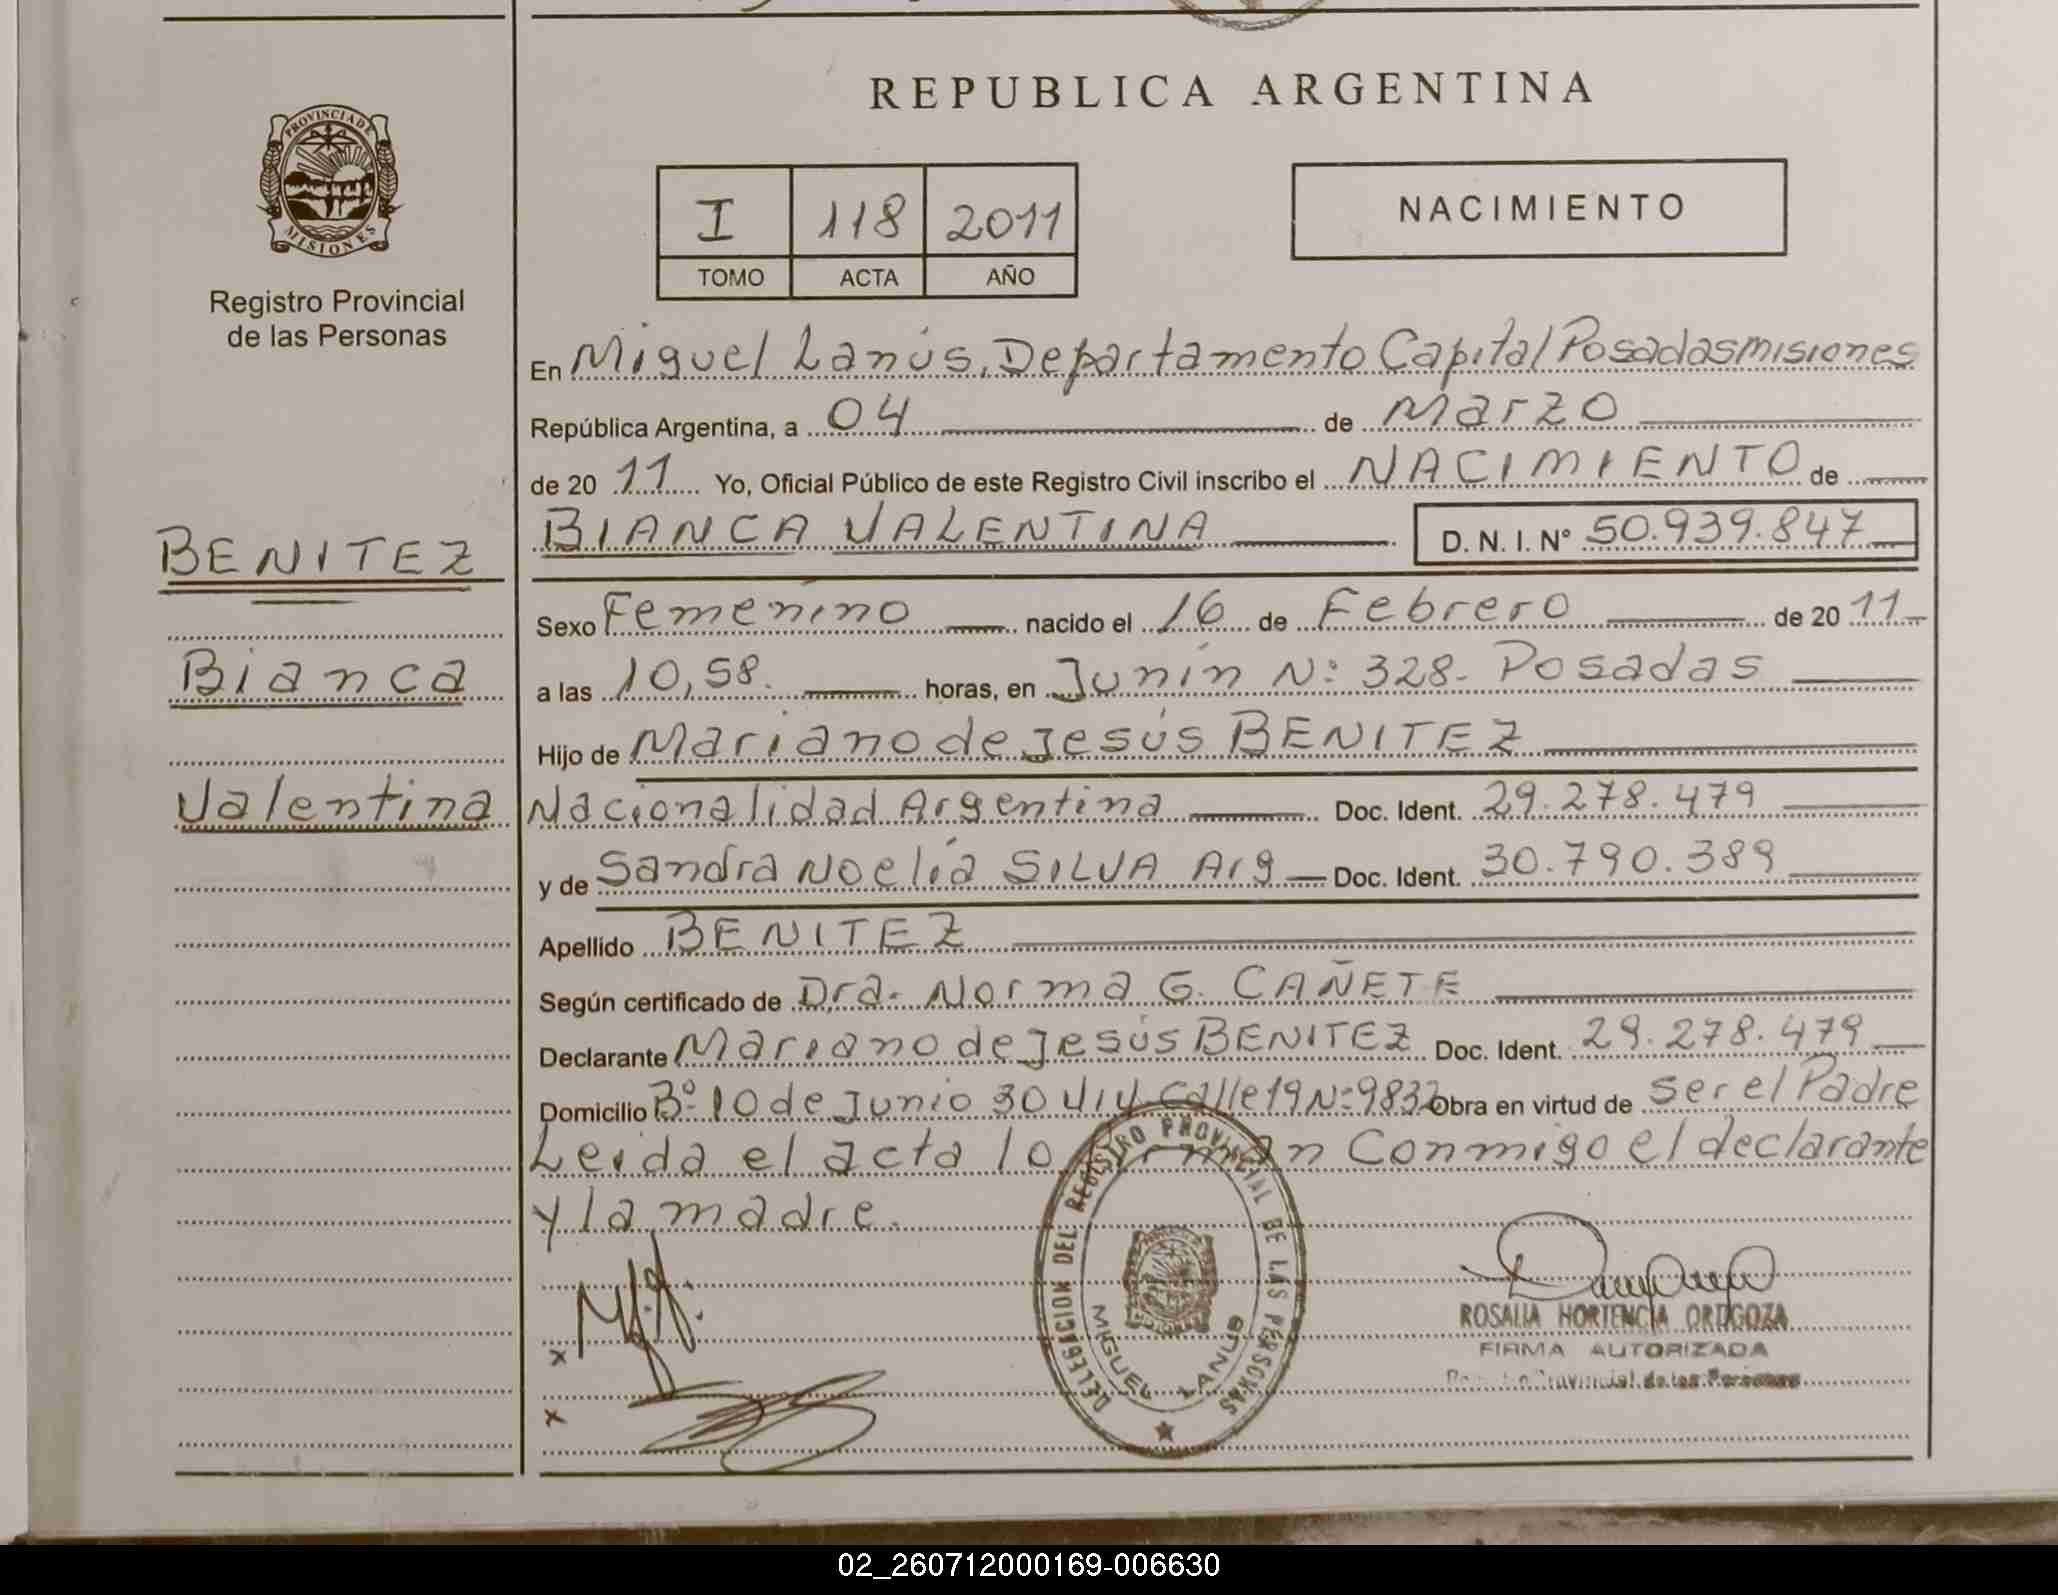 REPUBLICA ARGENTINA
PROVINCIA DE
MISIONES
Registro Provincial
de las Personas
I 118 2011
TOMO ACTA AÑO
NACIMIENTO
En Miguel Lanús, Departamento Capital Posadas misiones
República Argentina, a 04 de Marzo
de 20 11 Yo, Oficial Público de este Registro Civil inscribo el NACIMIENTO de
BIANCA VALENTINA D. N. I. Nº 50.939.847
BENITEZ
Bianca
Valentina
Sexo Femenino nacido el 16 de Febrero de 20 11
a las 10,58. horas, en Junín Nº 328- Posadas
Hijo de Mariano de Jesús BENITEZ
Nacionalidad Argentina Doc. Ident. 29.278.479
y de Sandra Noelia SILVA Arg Doc. Ident. 30.790.389
Apellido BENITEZ
Según certificado de Dra. Norma G. CAÑETE
Declarante Mariano de Jesús BENITEZ Doc. Ident. 29.278.479
Domicilio Bº 10 de Junio 30 Viv Calle 19 Nº 9832 Obra en virtud de ser el Padre
Leida el acta lo firman conmigo el declarante
y la madre.
DELEGACION DEL REGISTRO PROVINCIAL DE LAS PERSONAS
MIGUEL LANUS
ROSALIA HORTENCIA ORTIGOZA
FIRMA AUTORIZADA
Provincial de las Personas
x
x
02_260712000169-006630